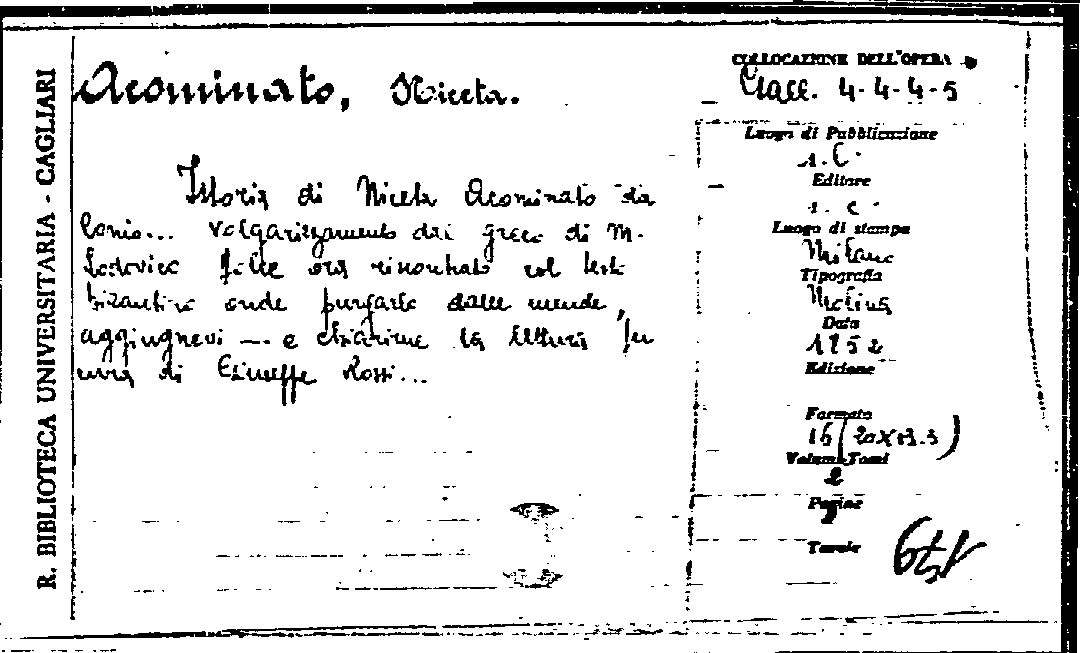 R. BIBLIOTECA UNIVERSITARIA - CAGLIARI
Acominato, Niceta.
Istoria di Niceta Acominato da
Conio... volgarizzamento dal greco di M.
Lodovico Dolce ora riscontrato col testo
bizantino onde purgarlo dalle mende,
aggiugnevi — e chiarirne la lettura per
cura di Giuseppe Rossi...
COLLOCAZIONE DELL'OPERA
4-4-4-5
Luogo di Pubblicazione
s. l.
Editore
s. e.
Luogo di stampa
Milano
Tipografia
Molina
Data
1852
Edizione
Formato
16 (20x13.5)
Volumi-Tomi
2
Pagine
Tavole